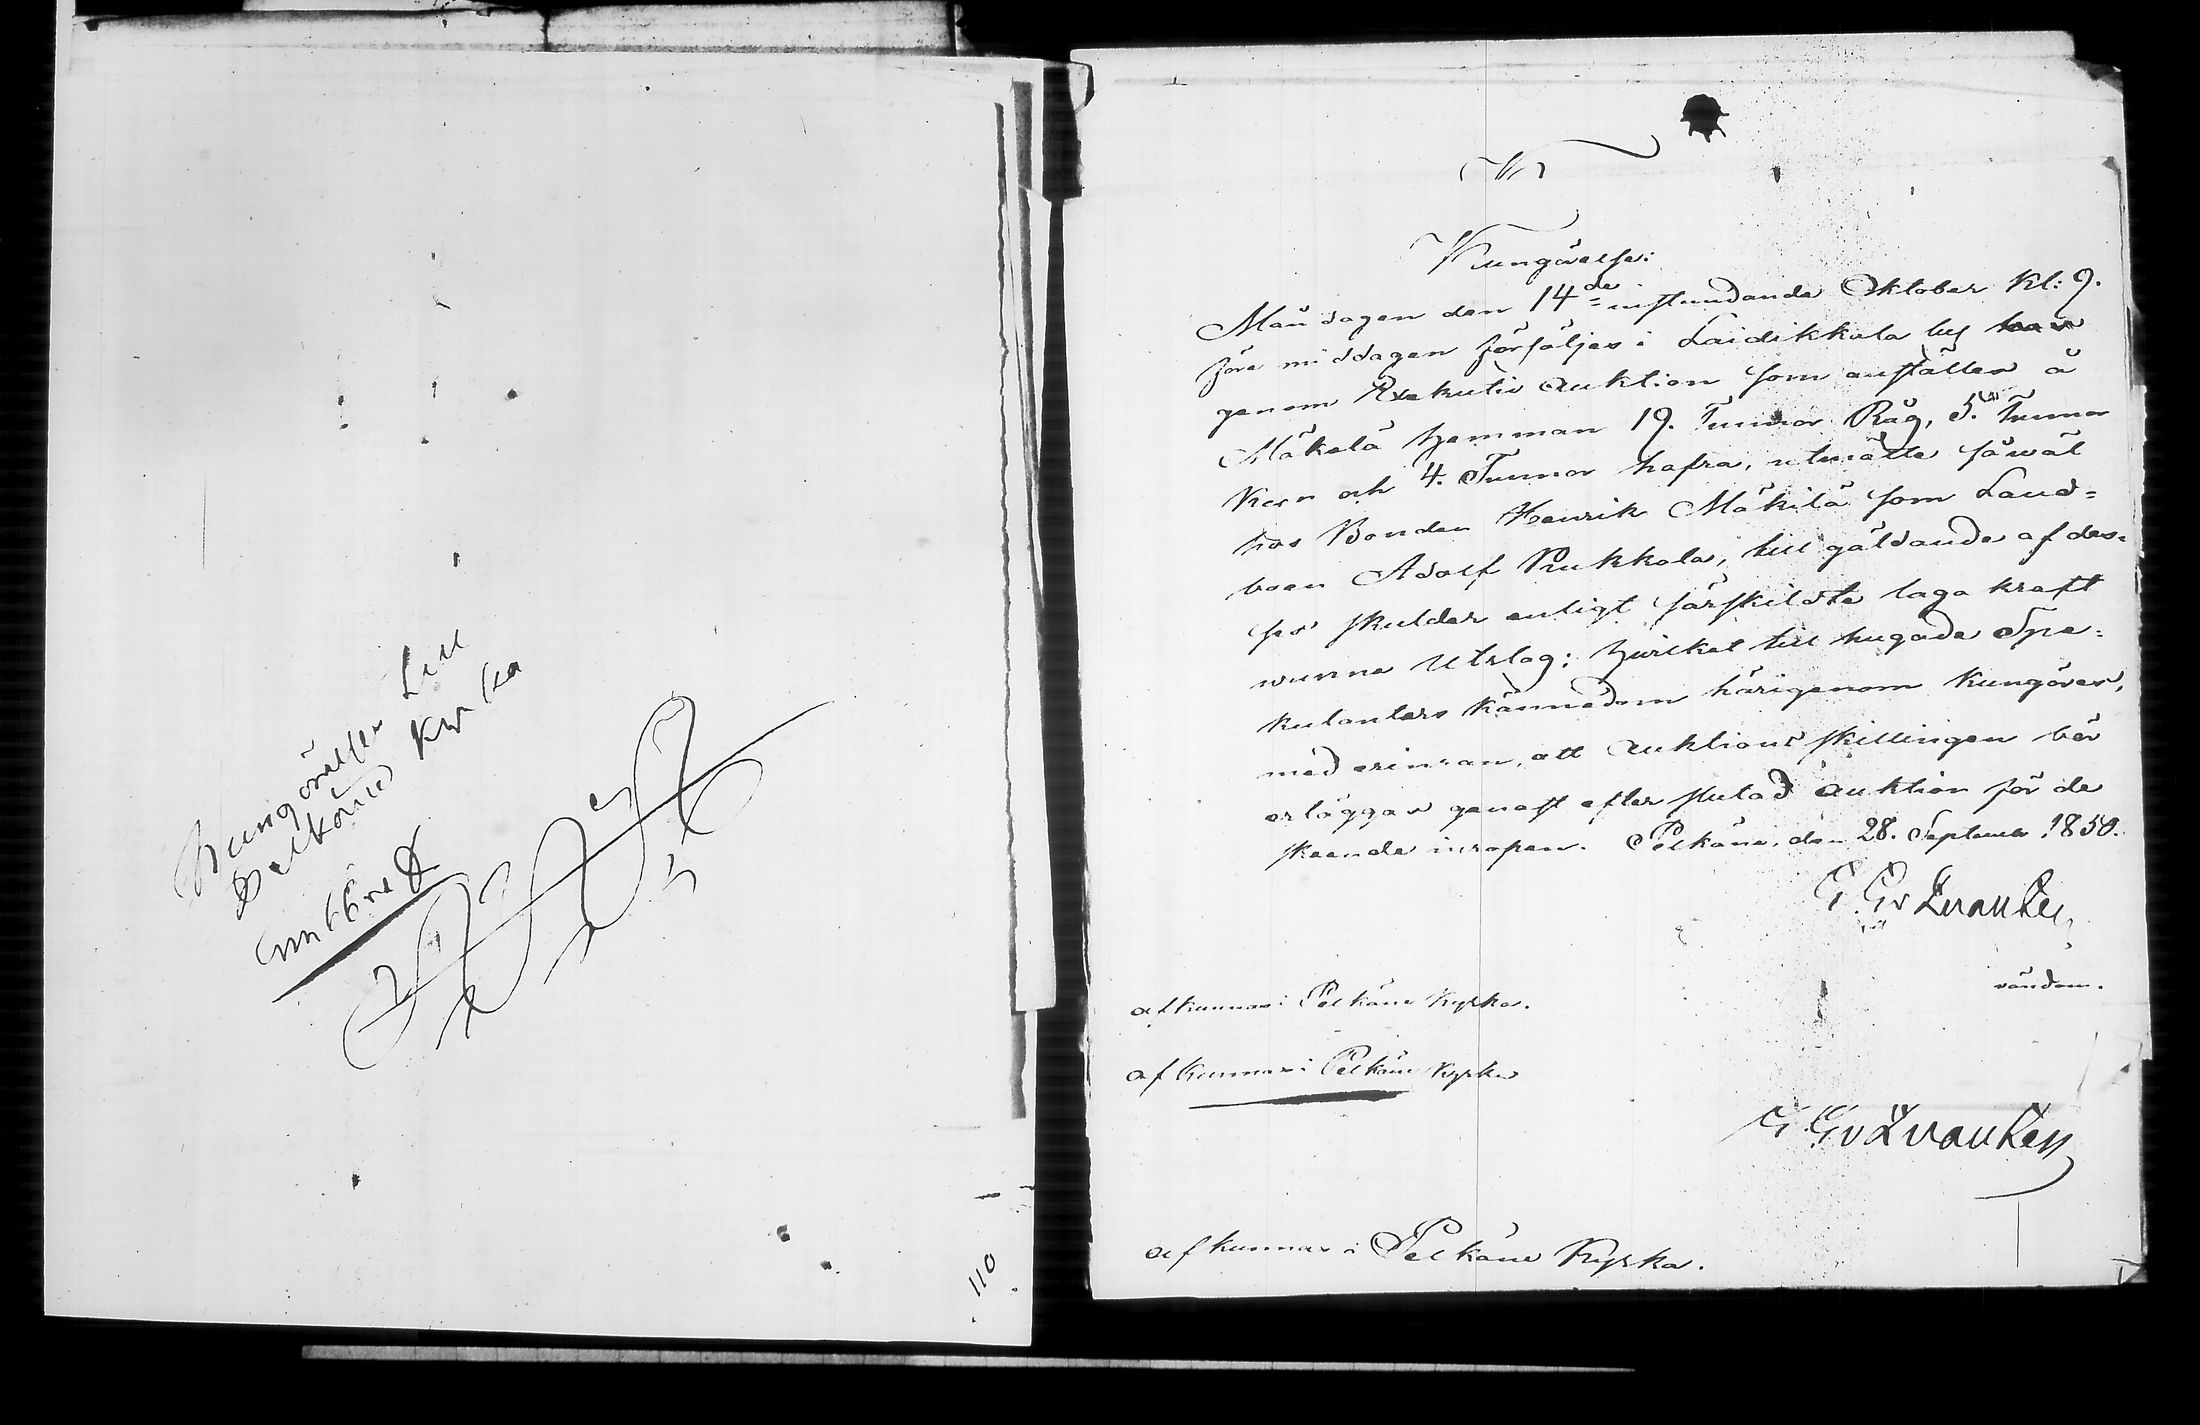 Kungörelse till
Pelkäne Kyrka
110
Kungörelse:
Måndagen den 14de instundande Oktober Kl: 9.
före middagen försäljes i Laidikkala by
genom Exekutiv Auktion som anställes å
Mäkelä hemman 19. Tunnor Råg, 5. Tunnor
Korn och 4. Tunnor hafra, utmätte såwäl
hos Bonden Henrik Mäkilä som Land=
boen Adolf Pukkala, till gäldande af des=
ses skulder enligt särskildte laga kraft
wunne Utslag; hwilket till hugade Spe=
kulanters kännedom härigenom kungöres,
med erinran, att Auktions skillingen bör
erläggas genast efter slutad Auktion för de
skeende inropen. Pelkäne, den 28. September 1850.
vändom.
afkunnas i Pelkäne Kyrka.
afkunnas i Pelkäne Kyrka
afkunnas i Pelkäne Kyrka.